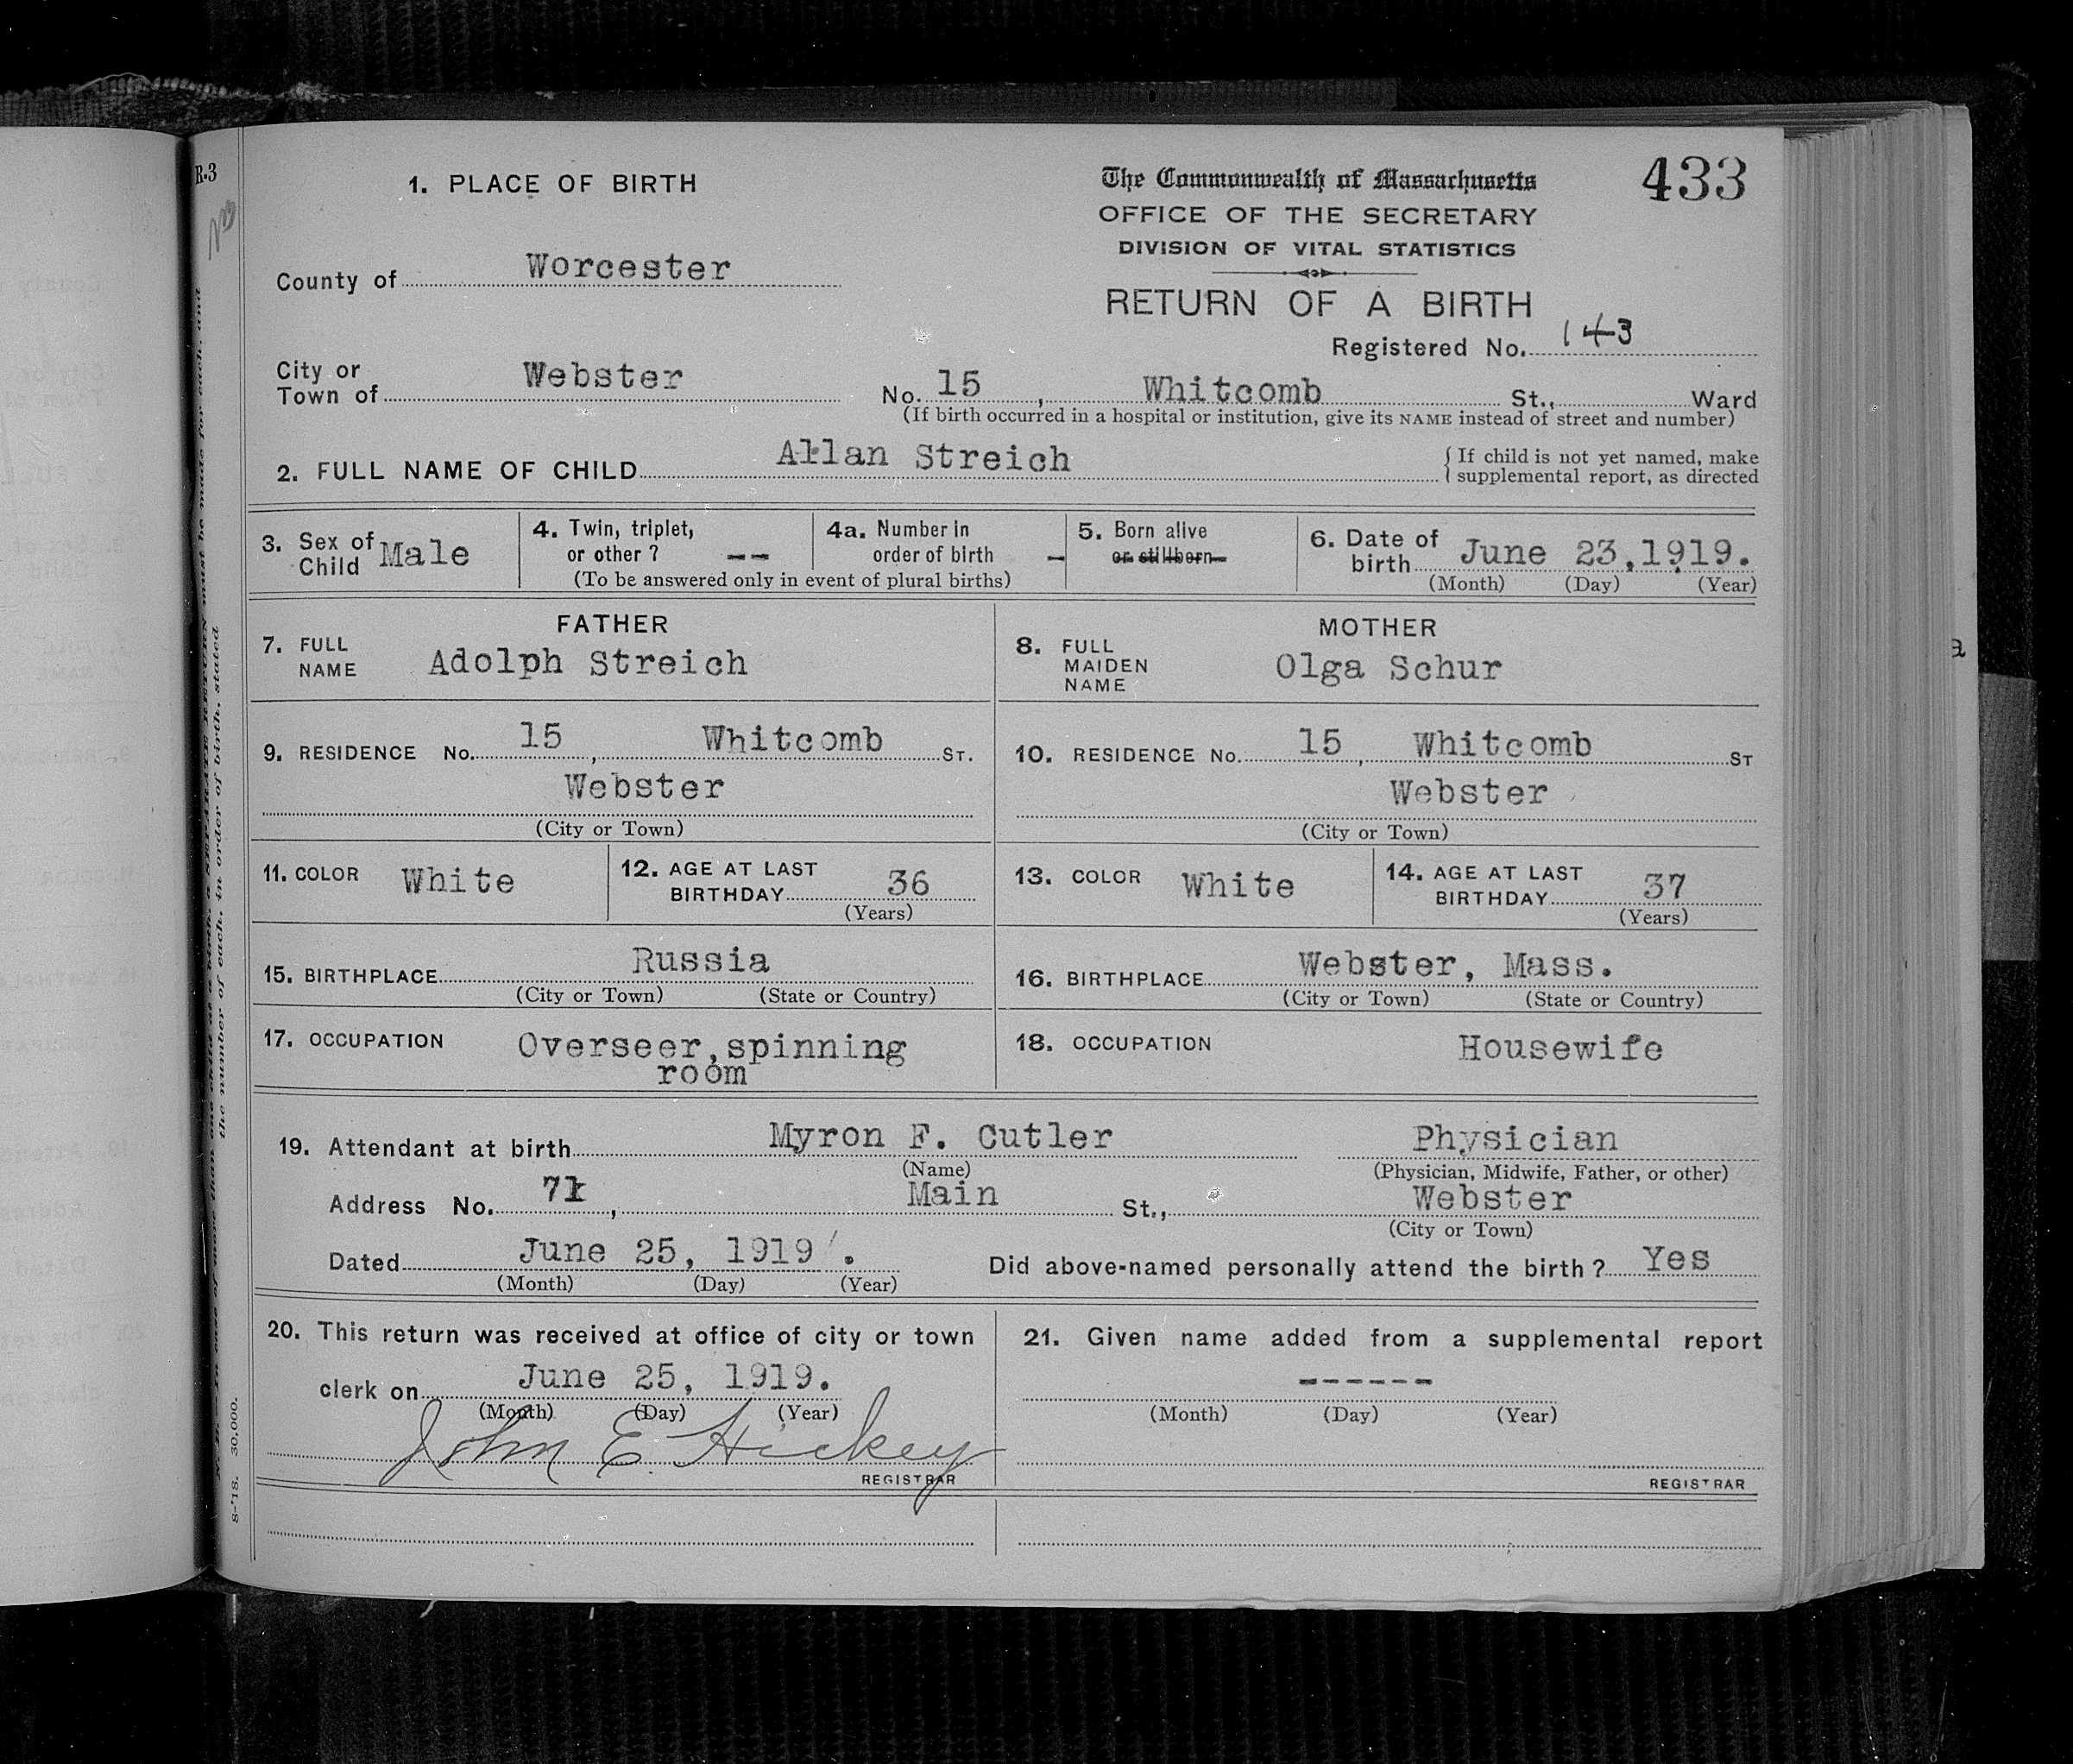 R-3
433
1. PLACE OF BIRTH
The Commonwealth of Massachusetts
OFFICE OF THE SECRETARY
DIVISION OF VITAL STATISTICS
County of Worcester
RETURN OF A BIRTH
Registered No. 143
City or
Town of Webster No. 15, Whitcomb St., Ward
(If birth occurred in a hospital or institution, give its NAME instead of street and number)
2. FULL NAME OF CHILD Allan Streich { If child is not yet named, make
supplemental report, as directed
3. Sex of
Child Male
4. Twin, triplet,
or other ? --
4a. Number in
order of birth -
(To be answered only in event of plural births)
5. Born alive
or stillborn
6. Date of
birth June 23, 1919.
(Month) (Day) (Year)
FATHER
7. FULL
NAME Adolph Streich
MOTHER
8. FULL
MAIDEN
NAME Olga Schur
9. RESIDENCE No. 15, Whitcomb ST.
Webster
(City or Town)
10. RESIDENCE No. 15, Whitcomb ST
Webster
(City or Town)
11. COLOR White
12. AGE AT LAST
BIRTHDAY 36
(Years)
13. COLOR White
14. AGE AT LAST
BIRTHDAY 37
(Years)
15. BIRTHPLACE Russia
(City or Town) (State or Country)
16. BIRTHPLACE Webster, Mass.
(City or Town) (State or Country)
17. OCCUPATION Overseer, spinning
room
18. OCCUPATION Housewife
19. Attendant at birth Myron F. Cutler Physician
(Name) (Physician, Midwife, Father, or other)
Address No. 71, Main St., Webster
(City or Town)
Dated June 25, 1919. Did above-named personally attend the birth? Yes
(Month) (Day) (Year)
20. This return was received at office of city or town
clerk on June 25, 1919.
(Month) (Day) (Year)
John E. Hickey
REGISTRAR
21. Given name added from a supplemental report
------
(Month) (Day) (Year)
REGISTRAR
the number of each, in order of birth, stated
8-'18. 30,000.